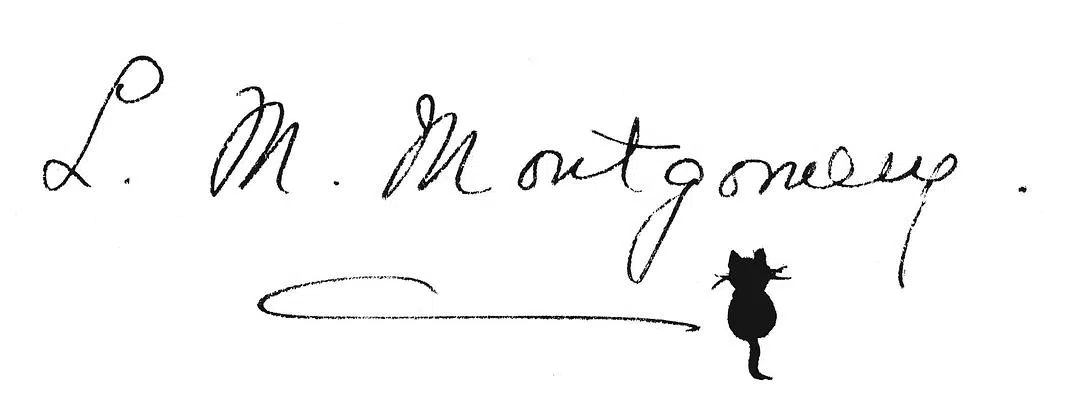 L. M. Montgomery.